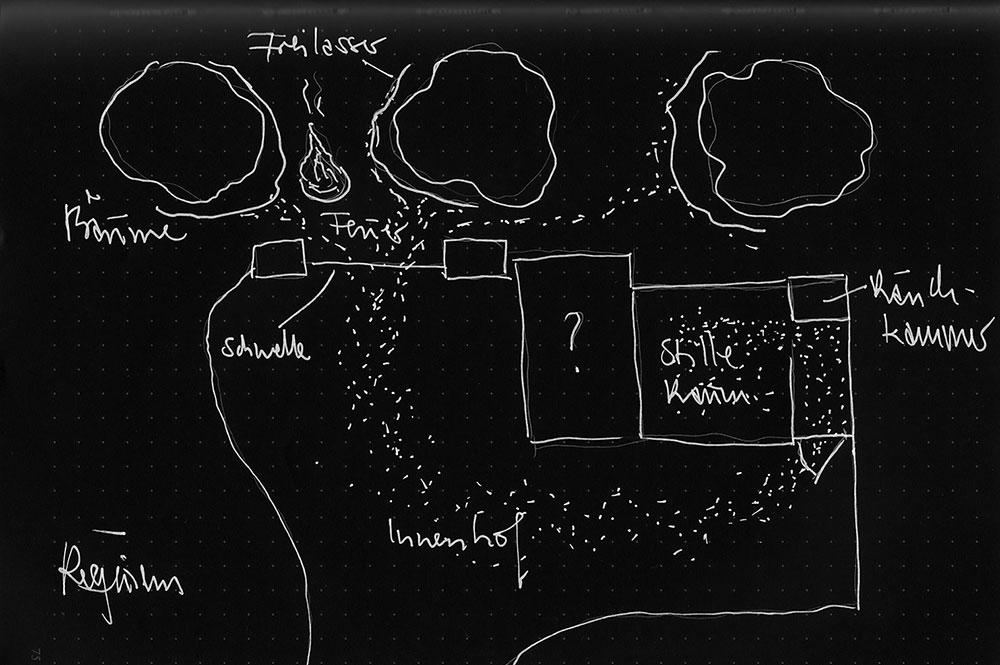 Freilasser
Bäume
Feuer
Schwelle
?
Stille
Raum
Räuch-
kammer
Innenhof
75